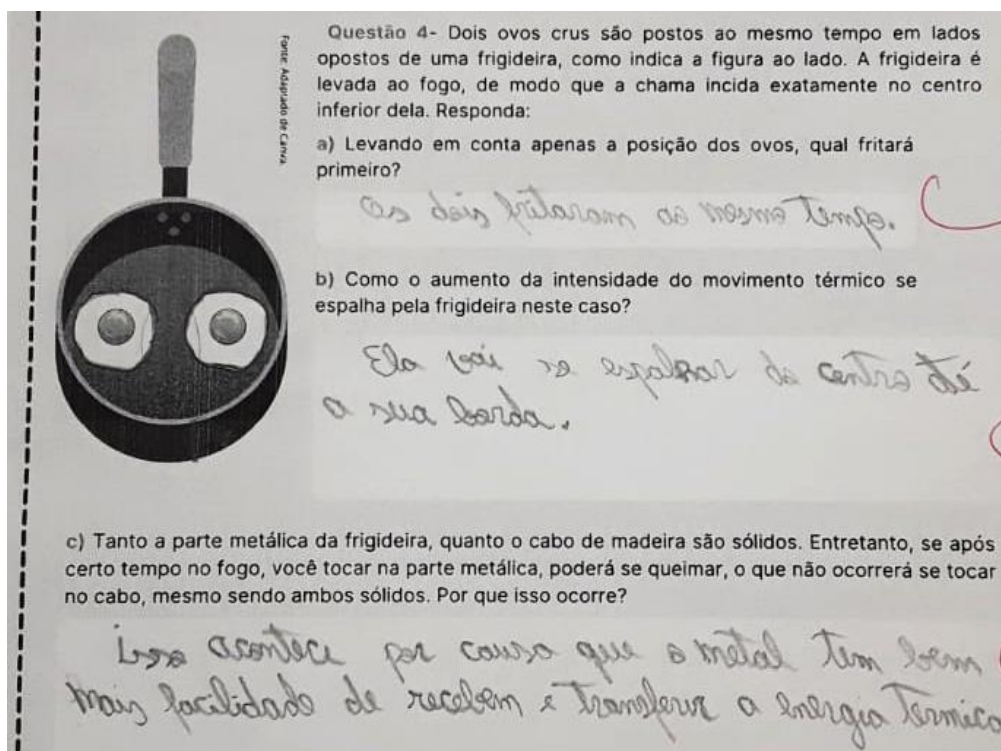 Fonte: Adaptado de Canva.
Questão 4- Dois ovos crus são postos ao mesmo tempo em lados
opostos de uma frigideira, como indica a figura ao lado. A frigideira é
levada ao fogo, de modo que a chama incida exatamente no centro
inferior dela. Responda:
a) Levando em conta apenas a posição dos ovos, qual fritará
primeiro?
Os dois fritaram ao mesmo tempo.
b) Como o aumento da intensidade do movimento térmico se
espalha pela frigideira neste caso?
Ela vai se espalhar do centro té
a sua borda.
c) Tanto a parte metálica da frigideira, quanto o cabo de madeira são sólidos. Entretanto, se após
certo tempo no fogo, você tocar na parte metálica, poderá se queimar, o que não ocorrerá se tocar
no cabo, mesmo sendo ambos sólidos. Por que isso ocorre?
isso acontece por causa que o metal tem bem
mais facilidade de recebem e transferir a energia termica